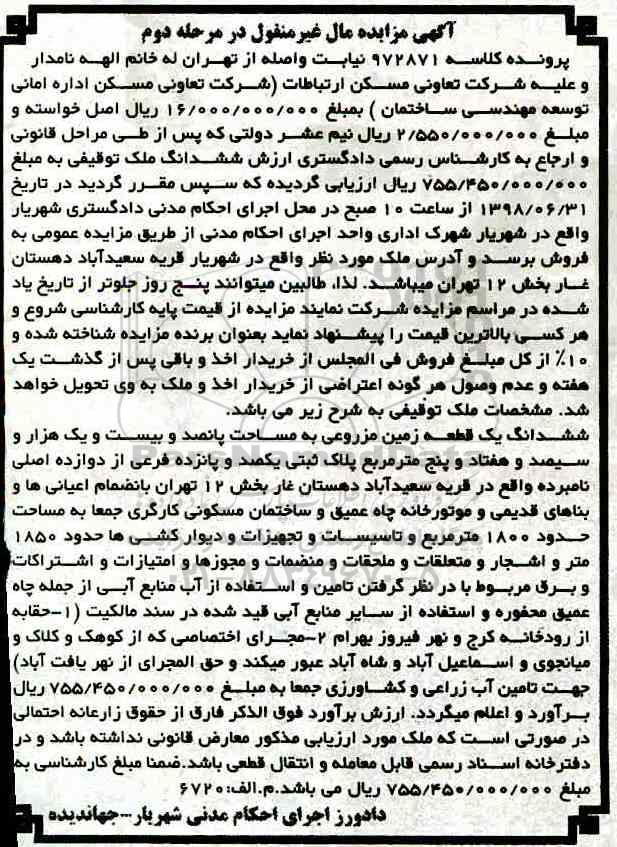 آگهی مزایده مال غیرمنقول در مرحله دوم
پرونده کلاسه ۹۷۲۸۷۱ نیابت واصله از تهران له خانم الهه نامدار
و علیه شرکت تعاونی مسکن ارتباطات (شرکت تعاونی مسکن اداره امانی
توسعه مهندسی ساختمان ) بمبلغ ۱۶/۰۰۰/۰۰۰/۰۰۰ ریال اصل خواسته و
مبلغ ۲/۵۵۰/۰۰۰/۰۰۰ ریال نیم عشر دولتی که پس از طی مراحل قانونی
و ارجاع به کارشناس رسمی دادگستری ارزش ششدانگ ملک توقیفی به مبلغ
۷۵۵/۴۵۰/۰۰۰/۰۰۰ ریال ارزیابی گردیده که سپس مقرر گردید در تاریخ
۱۳۹۸/۰۶/۳۱ از ساعت ۱۰ صبح در محل اجرای احکام مدنی دادگستری شهریار
واقع در شهریار شهرک اداری واحد اجرای احکام مدنی از طریق مزایده عمومی به
فروش برسد و آدرس ملک مورد نظر واقع در شهریار قریه سعیدآباد دهستان
غار بخش ۱۲ تهران میباشد. لذا، طالبین میتوانند پنج روز جلوتر از تاریخ یاد
شده در مراسم مزایده شرکت نمایند مزایده از قیمت پایه کارشناسی شروع و
هر کسی بالاترین قیمت را پیشنهاد نماید بعنوان برنده مزایده شناخته شده و
۱۰٪ از کل مبلغ فروش فی المجلس از خریدار اخذ و باقی پس از گذشت یک
هفته و عدم وصول هر گونه اعتراضی از خریدار اخذ و ملک به وی تحویل خواهد
شد. مشخصات ملک توقیفی به شرح زیر می باشد.
ششدانگ یک قطعه زمین مزروعی به مساحت پانصد و بیست و یک هزار و
سیصد و هفتاد و پنج مترمربع پلاک ثبتی یکصد و پانزده فرعی از دوازده اصلی
نامبرده واقع در قریه سعیدآباد دهستان غار بخش ۱۲ تهران بانضمام اعیانی ها و
بناهای قدیمی و موتورخانه چاه عمیق و ساختمان مسکونی کارگری جمعا به مساحت
حدود ۱۸۰۰ مترمربع و تاسیسات و تجهیزات و دیوار کشی ها حدود ۱۸۵۰
متر و اشجار و متعلقات و ملحقات و منضمات و مجوزها و امتیازات و اشتراکات
و برق مربوط با در نظر گرفتن تامین و استفاده از آب منابع آبی از جمله چاه
عمیق محفوره و استفاده از سایر منابع آبی قید شده در سند مالکیت (۱-حقابه
از رودخانه کرج و نهر فیروز بهرام ۲-مجرای اختصاصی که از کوهک و کلاک و
میانجوی و اسماعیل آباد و شاه آباد عبور میکند و حق المجرای از نهر یافت آباد)
جهت تامین آب زراعی و کشاورزی جمعا به مبلغ ۷۵۵/۴۵۰/۰۰۰/۰۰۰ ریال
برآورد و اعلام میگردد. ارزش برآورد فوق الذکر فارق از حقوق زارعانه احتمالی
در صورتی است که ملک مورد ارزیابی مذکور معارض قانونی نداشته باشد و در
دفترخانه اسناد رسمی قابل معامله و انتقال قطعی باشد.ضمنا مبلغ کارشناسی به
مبلغ ۷۵۵/۴۵۰/۰۰۰/۰۰۰ ریال می باشد.م.الف:۶۷۲۰
دادورز اجرای احکام مدنی شهریار-جهاندیده